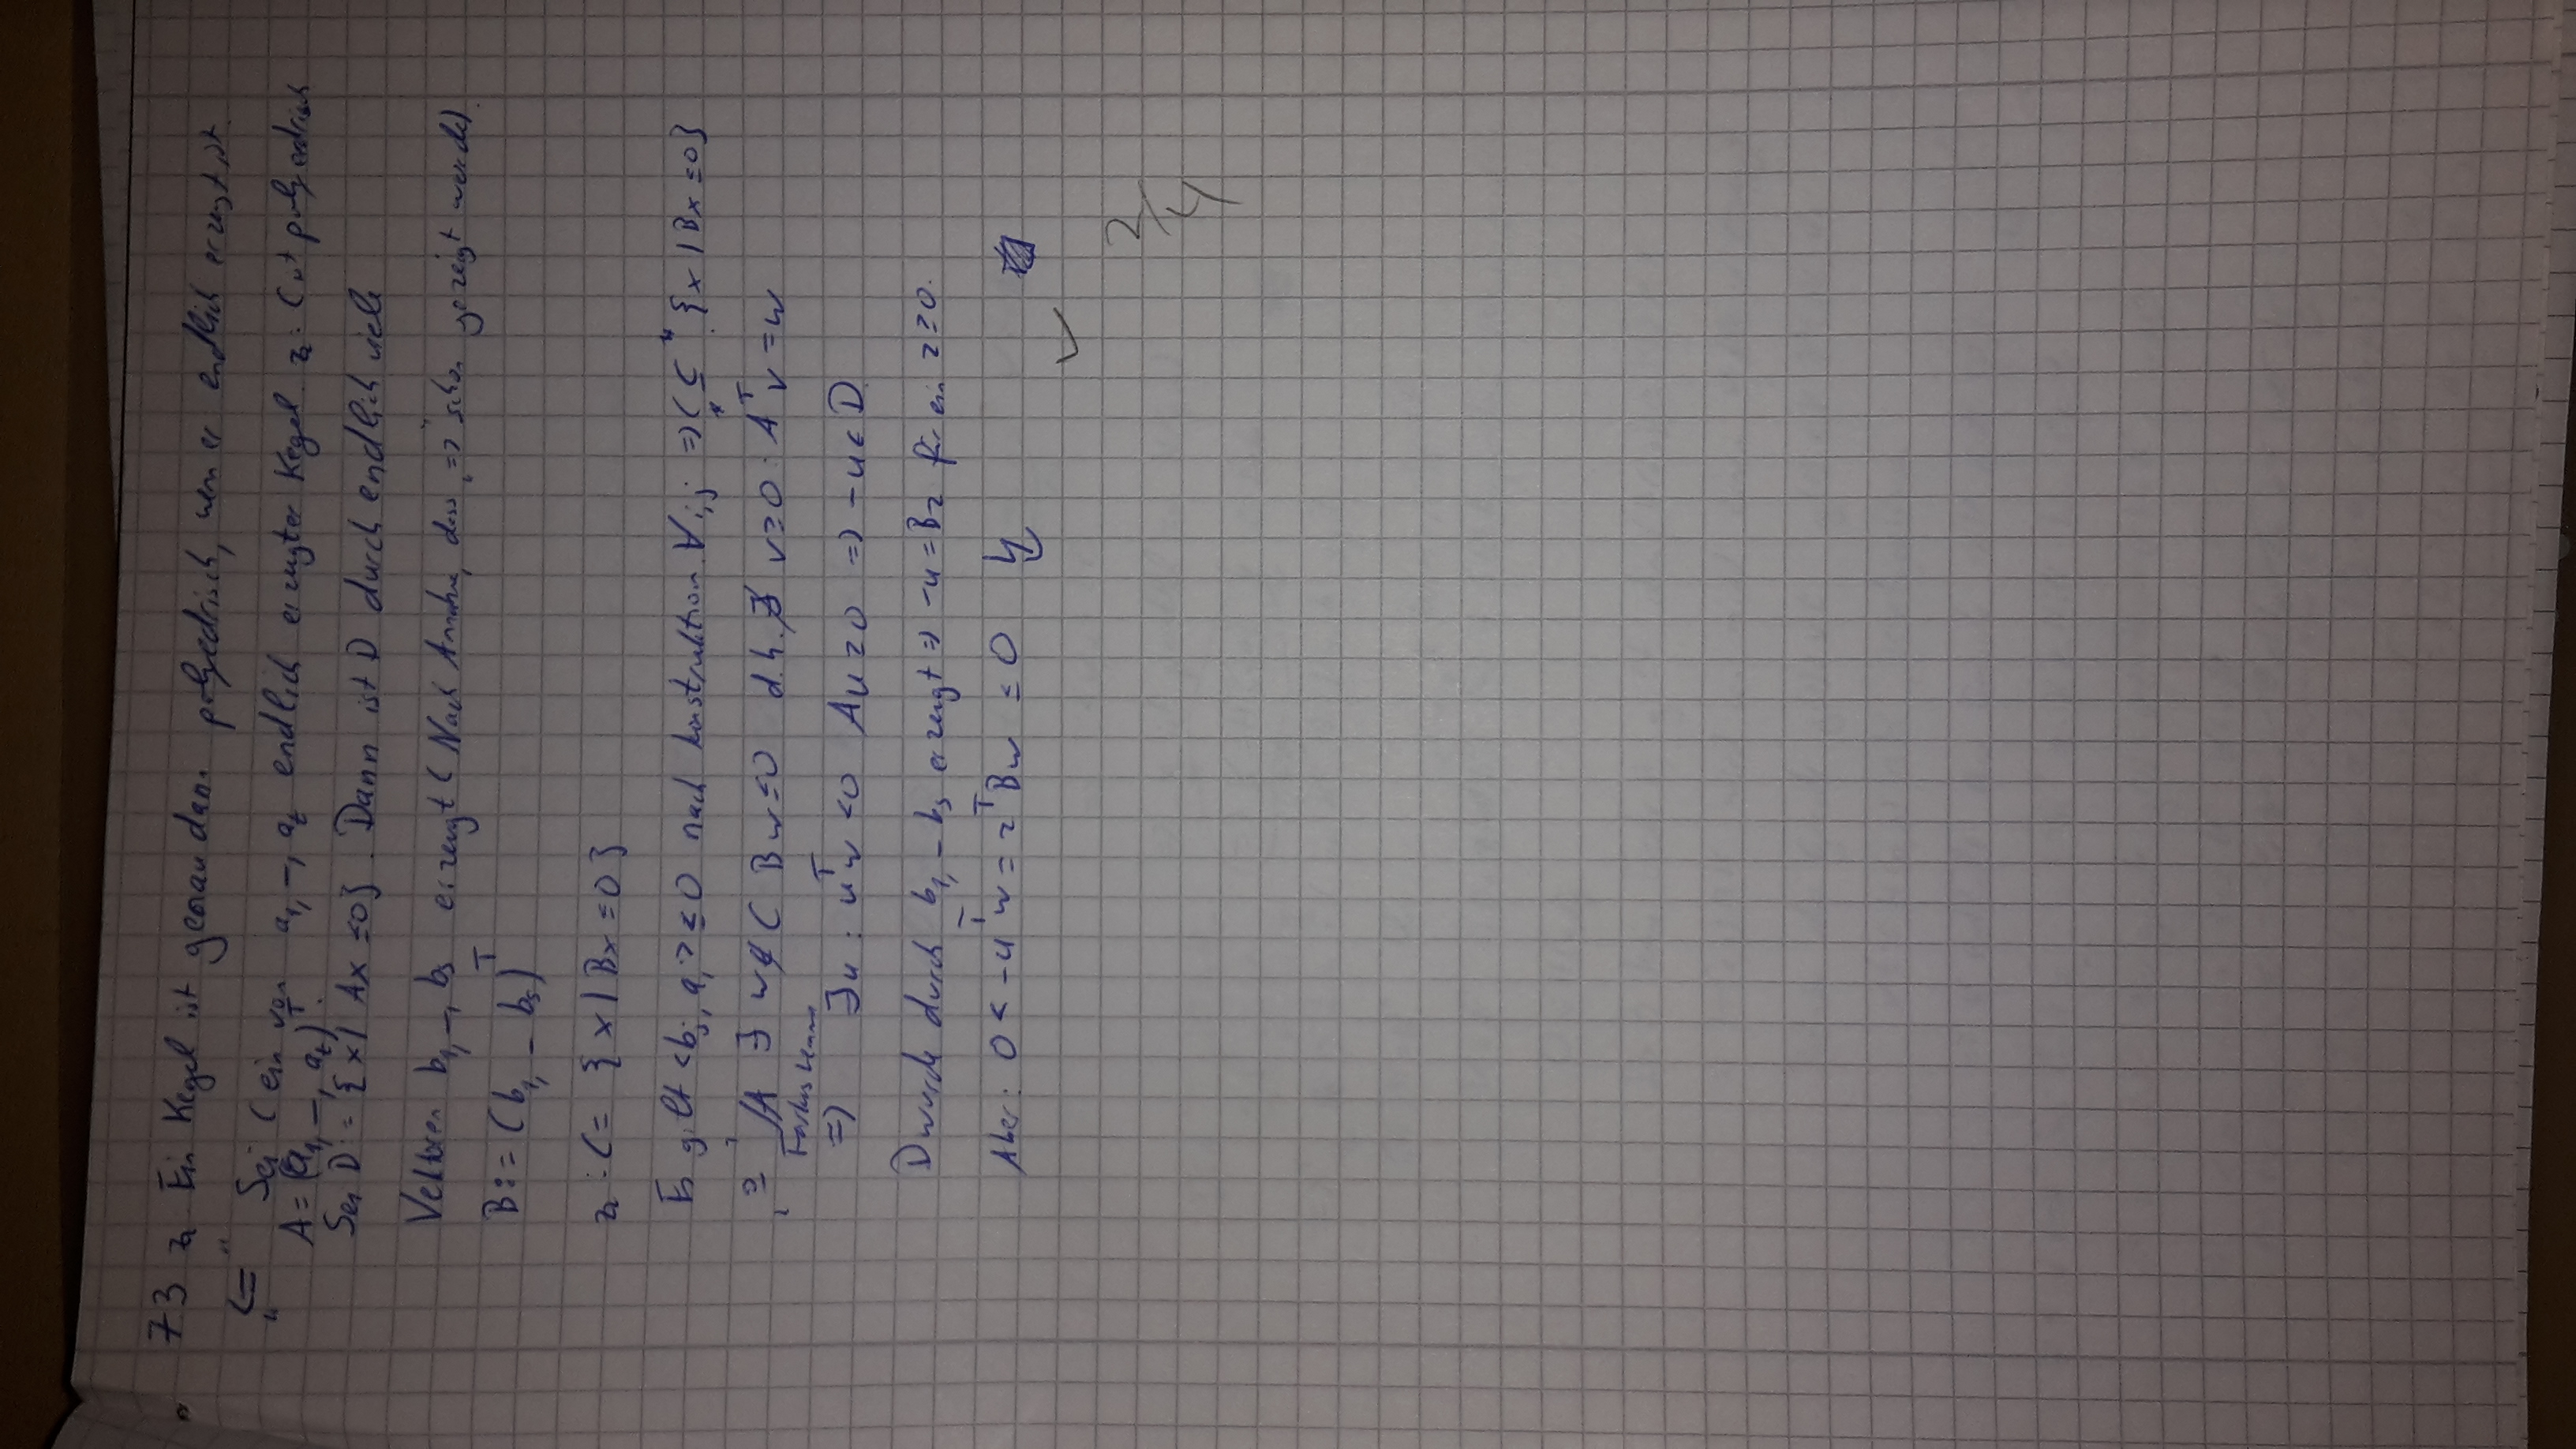 73 zz Ein Kegel ist genau dann polyedrisch, wenn er endlich erzeugt ist.
"<=" Sei C ein von a₁, –, aₜ endlich erzeugter Kegel. zz: C ist polyedrisch
A = (a₁, –, aₜ)ᵀ.
Sei D := {x | Ax ≤ 0}. Dann ist D durch endlich viele
Vektoren b₁, –, bₛ erzeugt (Nach Annahme, dass "=>" schon gezeigt wurde).
B := (b₁, – bₛ)ᵀ
zz: C = {x | Bx ≤ 0}
Es gilt <bⱼ, aᵢ> ≤ 0 nach Konstruktion ∀ i,j => C "⊆" {x | Bx ≤ 0}
"⊇" A ∃ w ∉ C Bw ≤ 0 d.h. ∄ v ≥ 0 : Aᵀv = w
Farkas Lemma
=> ∃u : uᵀw < 0 Au ≥ 0 => -u ∈ D.
D wurde durch b₁, – bₛ erzeugt => -u = Bz für ein z ≥ 0.
Aber: 0 < -uᵀw = zᵀBw ≤ 0 ↯
✓
2/4